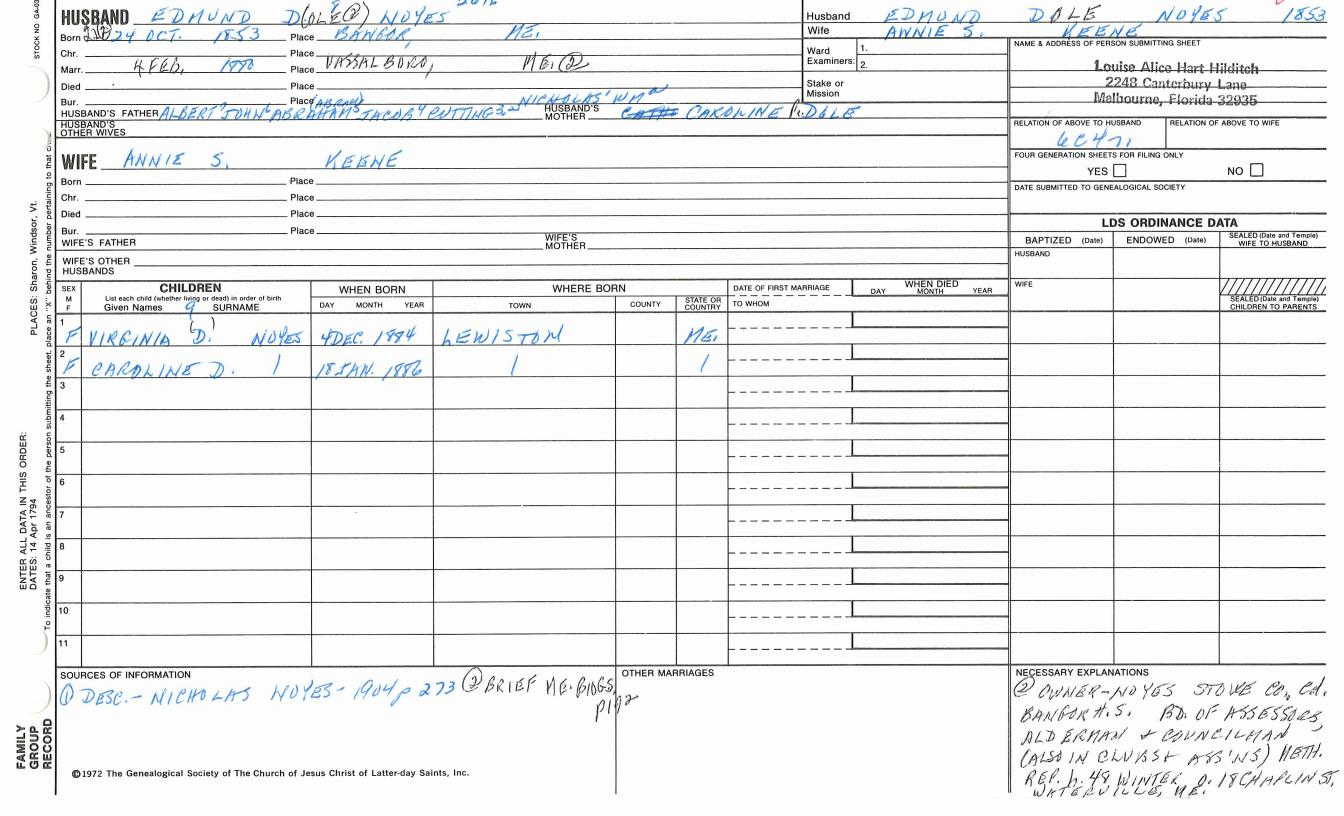 HUSBAND EDMUND D(OLE②) NOYES
Born 24 OCT. 1853 Place BANGOR, ME.
Chr. Place
Marr. 4 FEB. 1880 Place VASSALBORO, ME.②
Died Place
Bur. Place
HUSBAND'S FATHER ALBERT JOHN ABRAHAM JACOB CUTTING NICHOLAS WM HUSBAND'S MOTHER CAROLINE DOLE
HUSBAND'S OTHER WIVES
WIFE ANNIE S. KEENE
Born Place
Chr. Place
Died Place
Bur. Place
WIFE'S FATHER WIFE'S MOTHER
WIFE'S OTHER HUSBANDS
Husband EDMUND DOLE NOYES 1853
Wife ANNIE S. KEENE
Ward Examiners: 1.
2.
Stake or Mission
NAME & ADDRESS OF PERSON SUBMITTING SHEET
Louise Alice Hart Hilditch
2248 Canterbury Lane
Melbourne, Florida 32935
RELATION OF ABOVE TO HUSBAND RELATION OF ABOVE TO WIFE
6C4R
FOUR GENERATION SHEETS FOR FILING ONLY
YES NO
DATE SUBMITTED TO GENEALOGICAL SOCIETY
LDS ORDINANCE DATA
BAPTIZED (Date) ENDOWED (Date) SEALED (Date and Temple) WIFE TO HUSBAND
HUSBAND
WIFE
SEALED (Date and Temple) CHILDREN TO PARENTS
SEX M F CHILDREN WHEN BORN WHERE BORN DATE OF FIRST MARRIAGE WHEN DIED
List each child (whether living or dead) in order of birth DAY MONTH YEAR
Given Names SURNAME DAY MONTH YEAR TOWN COUNTY STATE OR COUNTRY TO WHOM
1 F VIRGINIA D. NOYES 4 DEC. 1884 LEWISTON ME.
2 F CAROLINE D. 18 JAN. 1886
3
4
5
6
7
8
9
10
11
SOURCES OF INFORMATION
① DESC.- NICHOLAS NOYES-1904 p 273 ② BRIEF ME. BIOGS. p192
OTHER MARRIAGES
NECESSARY EXPLANATIONS
② OWNER-NOYES STOVE CO., Ed.
BANGOR H.S. BD. OF ASSESSORS,
ALDERMAN + COUNCILMAN
(ALSO IN CLUBS + ASS'NS) METH.
REP. h. 48 WINTER O. 18 CHAPLIN ST.
WATERVILLE, ME.
©1972 The Genealogical Society of The Church of Jesus Christ of Latter-day Saints, Inc.
STOCK NO
PLACES: Sharon, Windsor, Vt.
ENTER ALL DATA IN THIS ORDER:
DATES: 14 Apr 1794
To indicate that a child is an ancestor of the person submitting the sheet, place an "X" behind the number pertaining to that
FAMILY
GROUP
RECORD